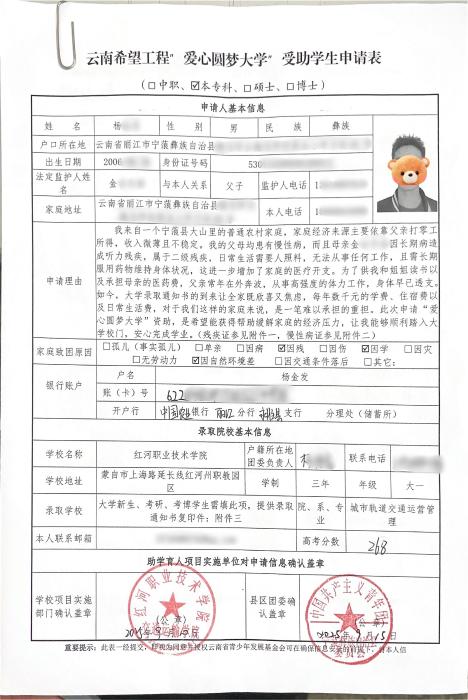 云南希望工程“爱心圆梦大学”受助学生申请表
(□中职、☑本专科、□硕士、□博士)
申请人基本信息
姓 名 杨 性 别 男 民 族 彝族
户口所在地 云南省丽江市宁蒗彝族自治县
出生日期 2006 身份证号码 530
法定监护人姓名 金 与本人关系 父子 监护人电话 1
家庭地址 云南省丽江市宁蒗彝族自治县 本人电话 1
申请理由
我来自一个宁蒗县大山里的普通农村家庭,家庭经济来源主要依靠父亲打零工
所得,收入微薄且不稳定。我的父母均患有慢性病,而且母亲金 因长期病造
成听力残疾,属于二级残疾,日常生活需要人照料,无法从事任何工作,且需长期
服用药物维持身体状况,这进一步增加了家庭的医疗开支。为了供我和姐姐读书以
及承担母亲的医药费,父亲常年在外奔波,从事高强度的体力工作,身体早已透支。
如今,大学录取通知书的到来让全家既欣喜又焦虑,每年数千元的学费、住宿费以
及日常生活费,对于我们这样的家庭来说,是一笔难以承担的重担。此次申请“爱
心圆梦大学”资助,是希望能获得帮助缓解家庭的经济压力,让我能够顺利踏入大
学校门,安心完成学业。(残疾证参见附件一,慢性病证参见附件二)
家庭致困原因 □孤儿(事实孤儿) □单亲 □因病 ☑因残 □因伤 ☑因学 □因灾
□无劳动力 ☑因自然环境差 □因交通条件落后 □其它:
银行账户
户名 杨金发
账(卡)号 622
开户行 中国 银行 丽江 分行 支行 分理处(储蓄所)
录取院校基本信息
学校名称 红河职业技术学院 户籍所在地团委负责人 联系电话
学校地址 蒙自市上海路延长线红河州职教园区 学制 三年 年级 大一
录取学校 大学新生、考研、考博学生需填此项,提供录取通知书复印件:附件三 院、系、专业 城市轨道交通运营管理
本人联系邮箱 高考分数 268
助学育人项目实施单位对申请信息确认盖章
学校项目实施部门确认盖章 红河职业技术学院 (公章)
2025年9月 日
县区团委确认盖章 中国共产主义青年团 委员会 (公章)
2025年9月15日
重要提示:此表一经提交,即视为同意并授权云南省青少年发展基金会可在确保信息安全的前提下,对本人信